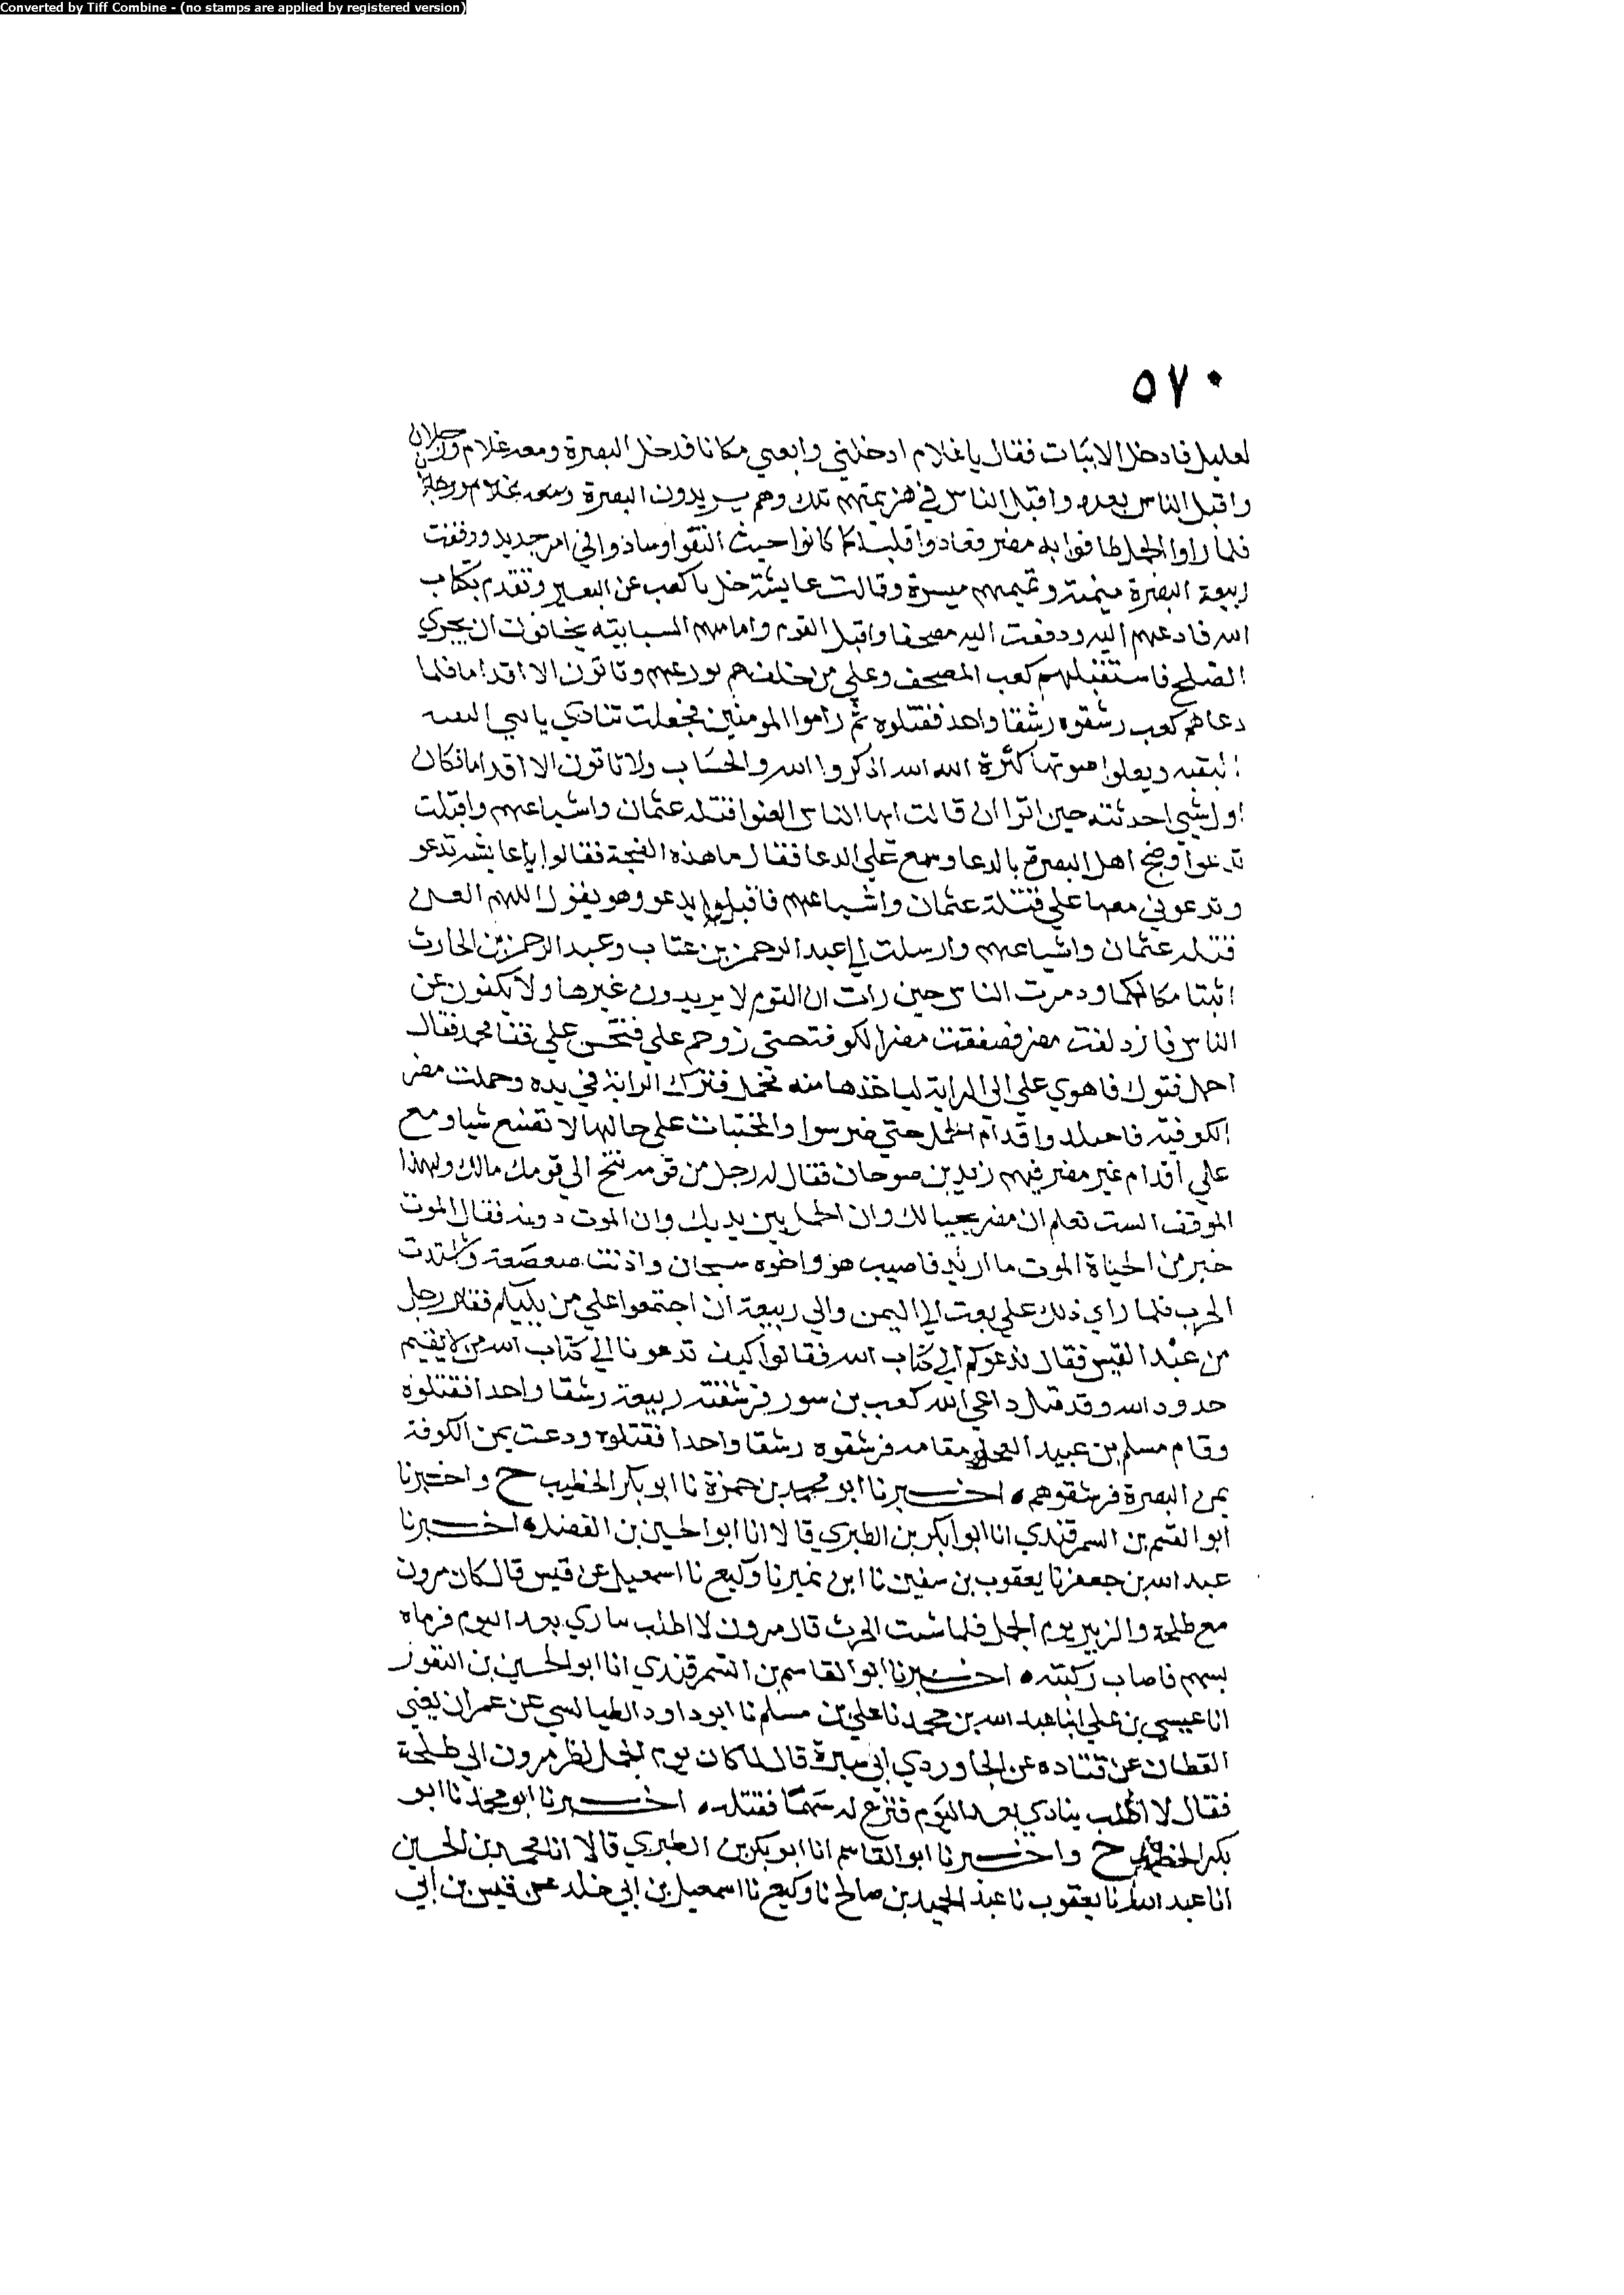 Converted by Tiff Combine - (no stamps are applied by registered version)
٥٧٠
لعليل فادخل الابيات فقال يا غلام ادخلني وابغني مكانا فدخل البصرة ومعه غلام ورجلان
واقبل الناس بعده واقبل الناس في هزيمتهم تلك وهم يريدون البصرة
فلما راوا الجمل طافوا به مضر وعادوا قلبا كما كانوا حيث التقوا وعادوا الي امر جديد ووقفت
ربيعة البصرة ميمنة وتميمهم ميسرة وقالت عايشة خل يا كعب عن البعير وتقدم بكتاب
الله فادعهم اليه ودفعت اليه مصحفا واقبل القوم وامامهم السبايية يخافون ان يجري
الصلح فاستقبلهم كعب المصحف وعلي من خلفهم يورعهم وياتون الا اقداما فلما
دعاهم كعب رشقوه رشقا واحد فقتلوه ثم راموا المومنين فجعلت تنادي يا بني البقيه
البقيه ويعلوا صوتها كثرة الله الله اذكروا الله والحساب ولا ياتون الا اقداما فكان
اول شيي احدثته حين ابوا ان قالت ايها الناس العنوا قتلة عثمان واشياعهم واقبلت
تدعوا وضج اهل البصرة بالدعا وسمع علي الدعا فقال ما هذه الضجة فقالوا عايشة تدعو
ويدعون معها علي قتلة عثمان واشياعهم فاقبل يدعو وهو يقول اللهم العن
قتله عثمان واشياعهم وارسلت الي عبد الرحمن بن عتاب وعبد الرحمن بن الحارث
اثبتا مكانكما ودمرت الناس حين رات ان القوم لا يريدون غيرها ولا يكفون عن
الناس فازدلفت مضر فصفقت مضر الكوفة حتي زوحم علي فنخس علي قفا محمد فقال
احمل فنول فاهوي علي الي الراية لياخذها منه فحمل فترك الراية في يده وحملت مضر
الكوفيه واقدام الجمل حتي ضرسوا والمجنبات علي حالها لا تصنع شيا ومع
علي اقدام غير مضر فيهم زيد بن صوحان فقال له رجل من قومه تنح الي قومك مالك ولهذا
الموقف الست تعلم ان مضر بحيالك وان الجمل بين يديك وان الموت دونه فقال الموت
خير من الحياة الموت ما اريد فاصيب هو واخوه سيحان وارتث صعصعة واشتدت
الحرب فلما راي ذلك علي بعث الي اليمن والي ربيعة ان اجتمعوا علي من يليكم فقام رجل
من عبد القيس فقال ندعوكم الي كتاب الله فقالوا كيف تدعونا الي كتاب الله من لا يقيم
حدود الله وقد قتل داعي الله كعب بن سور فرشقته ربيعة رشقا واحدا فقتلوه
وقام مسلم بن عبيد العجلي مقامه فرشقوه رشقا واحدا فقتلوه ودعت يمن الكوفة
يمن البصرة فرشقوهم ٠ اخبرنا ابو محمد بن حمزة نا ابو بكر الخطيب ح واخبرنا
ابو القسم بن السمرقندي انا ابو بكر بن الطبري قالا انا ابو الحسين بن الفضل ٥ اخبرنا
عبد الله بن جعفر نا يعقوب بن سفين نا ابن نمير نا وكيع نا اسمعيل عن قيس قال كان مرون
مع طلحة والزبير يوم الجمل فلما شبت الحرب قال مرون لا اطلب بثاري بعد اليوم فرماه
بسهم فاصاب ركبته ٥ اخبرنا ابو القاسم بن السمرقندي انا ابو الحسين بن النقور
انا عيسي بن علي انا عبد الله بن محمد نا علي بن مسلم نا ابو داود الطيالسي عن عمران يعني
القطان عن قتاده عن الجاوردي ابي سبرة قال لما كان يوم الجمل نظر مرون الي طلحة
فقال لا اطلب بثاري بعد اليوم فنزع له سهما فقتله ٥ اخبرنا ابو محمد نا ابو
بكر الخطيب ح واخبرنا ابو القاسم انا ابو بكر بن الطبري قالا انا محمد بن الحسين
انا عبد الله نا يعقوب نا عبد الحميد بن صالح نا وكيع نا اسمعيل بن ابي خلد عن قيس بن ابي